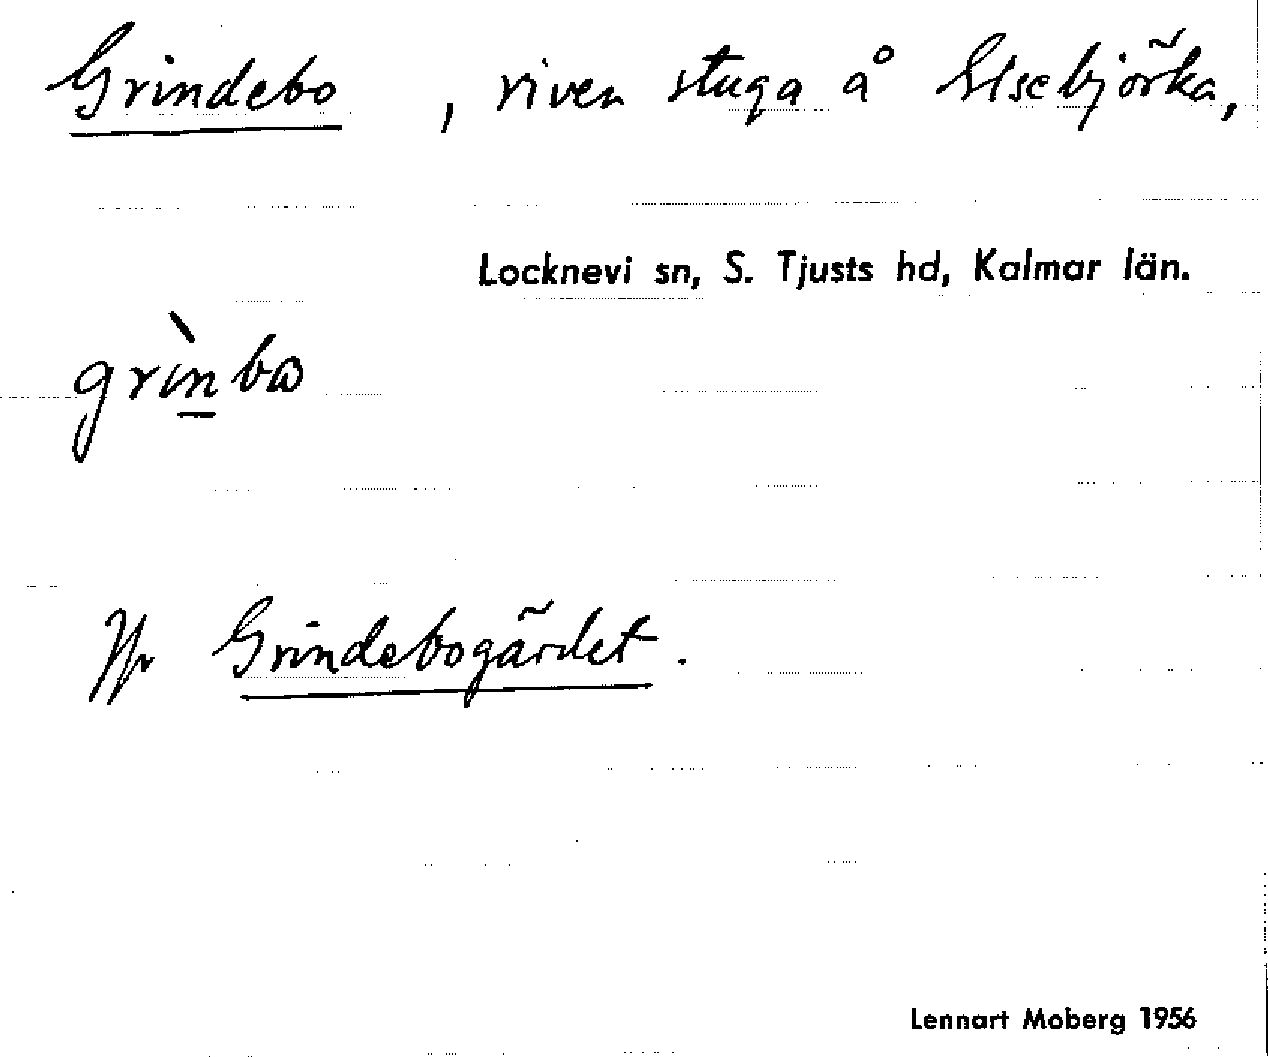 Grindebo, riven stuga å Elsebjörka,
Locknevi sn, S. Tjusts hd, Kalmar län.
grìnbω
Jfr Grindebogärdet.
Lennart Moberg 1956